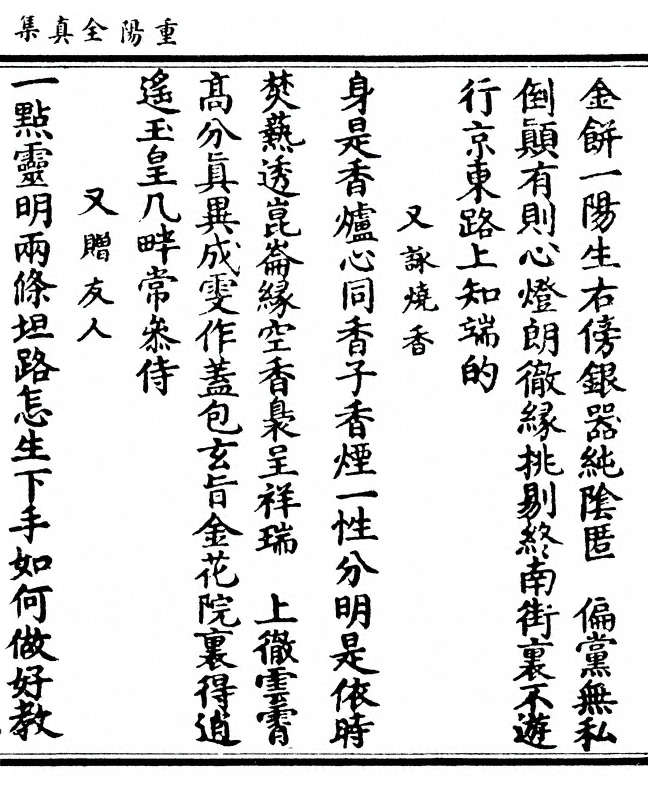 重陽全真集
金餅一陽生右傍銀器純陰匿　偏黨無私
倒顛有則心燈朗徹緣挑剔終南街裏不遊
行京東路上知端的
又詠燒香
身是香爐心同香子香煙一性分明是依時
焚爇透崑崙緣空香裊呈祥瑞　上徹雲霄
髙分真異成雯作蓋包玄旨金花院裏得逍
遙玉皇几畔常叅侍
又贈友人
一點靈明兩條坦路怎生下手如何做好教